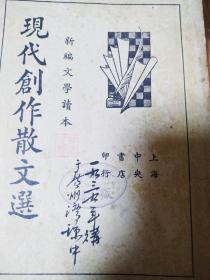 新編文學讀本
現代創作散文選
上海
中央
書店
印行
一九三六年購
于廣州
中